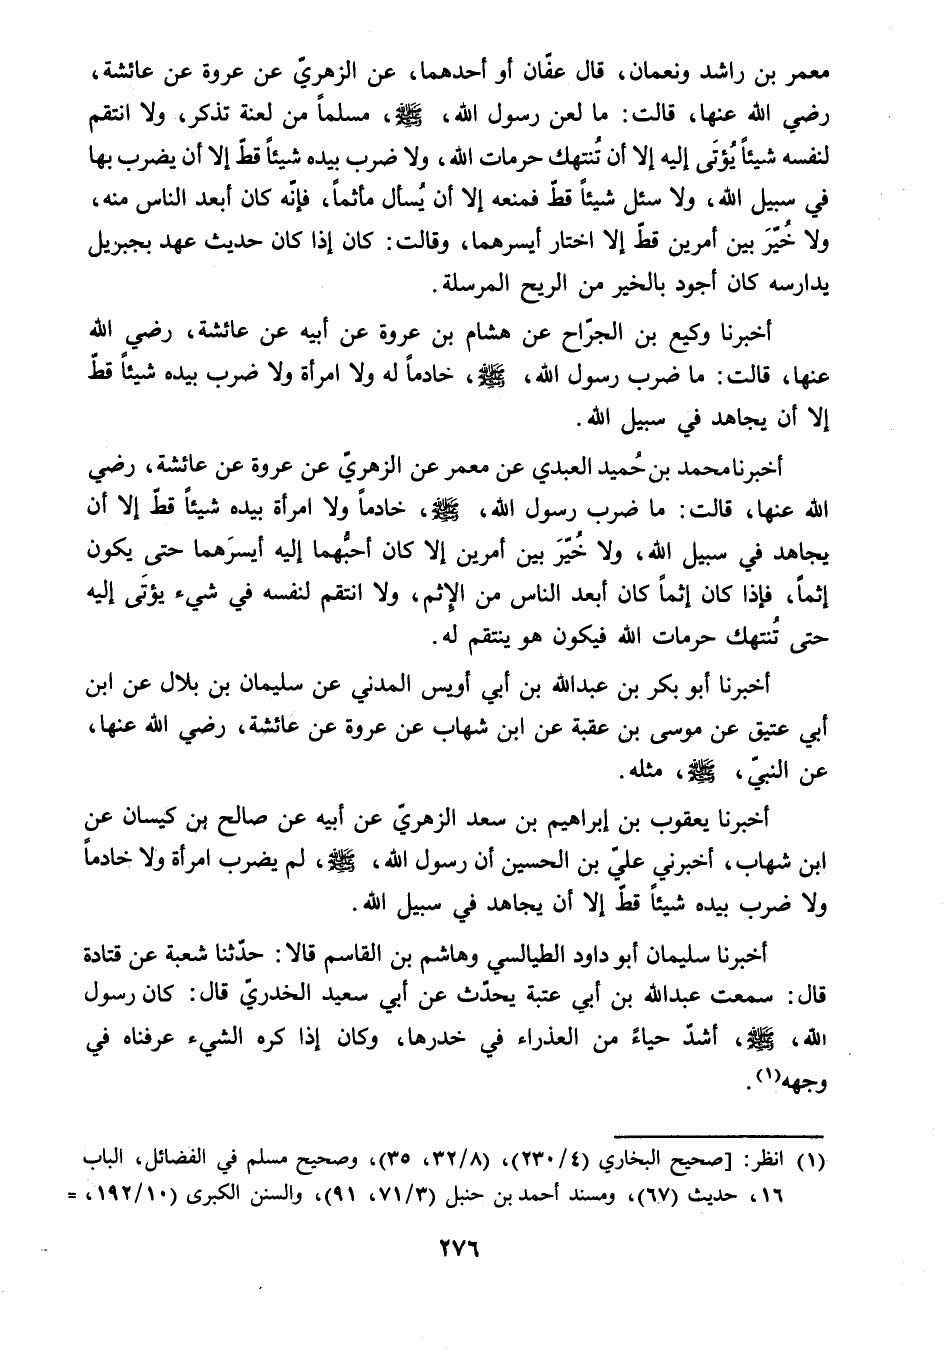 معمر بن راشد ونعمان، قال عفّان أو أحدهما، عن الزهريّ عن عروة عن عائشة،
رضي الله عنها، قالت: ما لعن رسول الله، ﷺ، مسلماً من لعنة تذكر، ولا انتقم
لنفسه شيئاً يُؤتَى إليه إلا أن تُنتهك حرمات الله، ولا ضرب بيده شيئاً قطّ إلا أن يضرب بها
في سبيل الله، ولا سئل شيئاً قطّ فمنعه إلا أن يُسأل مأثماً، فإنّه كان أبعد الناس منه،
ولا خُيّرَ بين أمرين قطّ إلا اختار أيسرهما، وقالت: كان إذا كان حديث عهد بجبريل
يدارسه كان أجود بالخير من الريح المرسلة.
أخبرنا وكيع بن الجرّاح عن هشام بن عروة عن أبيه عن عائشة، رضي الله
عنها، قالت: ما ضرب رسول الله، ﷺ، خادماً له ولا امرأة ولا ضرب بيده شيئاً قطّ
إلا أن يجاهد في سبيل الله.
أخبرنا محمد بن حُميد العبدي عن معمر عن الزهريّ عن عروة عن عائشة، رضي
الله عنها، قالت: ما ضرب رسول الله، ﷺ، خادماً ولا امرأة بيده شيئاً قطّ إلا أن
يجاهد في سبيل الله، ولا خُيّرَ بين أمرين إلا كان أحبُّهما إليه أيسرَهما حتى يكون
إثماً، فإذا كان إثماً كان أبعد الناس من الإثم، ولا انتقم لنفسه في شيء يؤتَى إليه
حتى تُنتهك حرمات الله فيكون هو ينتقم له.
أخبرنا أبو بكر بن عبدالله بن أبي أويس المدني عن سليمان بن بلال عن ابن
أبي عتيق عن موسى بن عقبة عن ابن شهاب عن عروة عن عائشة، رضي الله عنها،
عن النبيّ، ﷺ، مثله.
أخبرنا يعقوب بن إبراهيم بن سعد الزهريّ عن أبيه عن صالح بن كيسان عن
ابن شهاب، أخبرني عليّ بن الحسين أن رسول الله، ﷺ، لم يضرب امرأة ولا خادماً
ولا ضرب بيده شيئاً قطّ إلا أن يجاهد في سبيل الله.
أخبرنا سليمان أبو داود الطيالسي وهاشم بن القاسم قالا: حدّثنا شعبة عن قتادة
قال: سمعت عبدالله بن أبي عتبة يحدّث عن أبي سعيد الخدريّ قال: كان رسول
الله، ﷺ، أشدّ حياءً من العذراء في خدرها، وكان إذا كره الشيء عرفناه في
وجهه(١).
(١) انظر: [صحيح البخاري (٢٣٠/٤)، (٣٢/٨، ٣٥)، وصحيح مسلم في الفضائل، الباب
١٦، حديث (٦٧)، ومسند أحمد بن حنبل (٧١/٣، ٩١)، والسنن الكبرى (١٩٢/١٠، =
٢٧٦